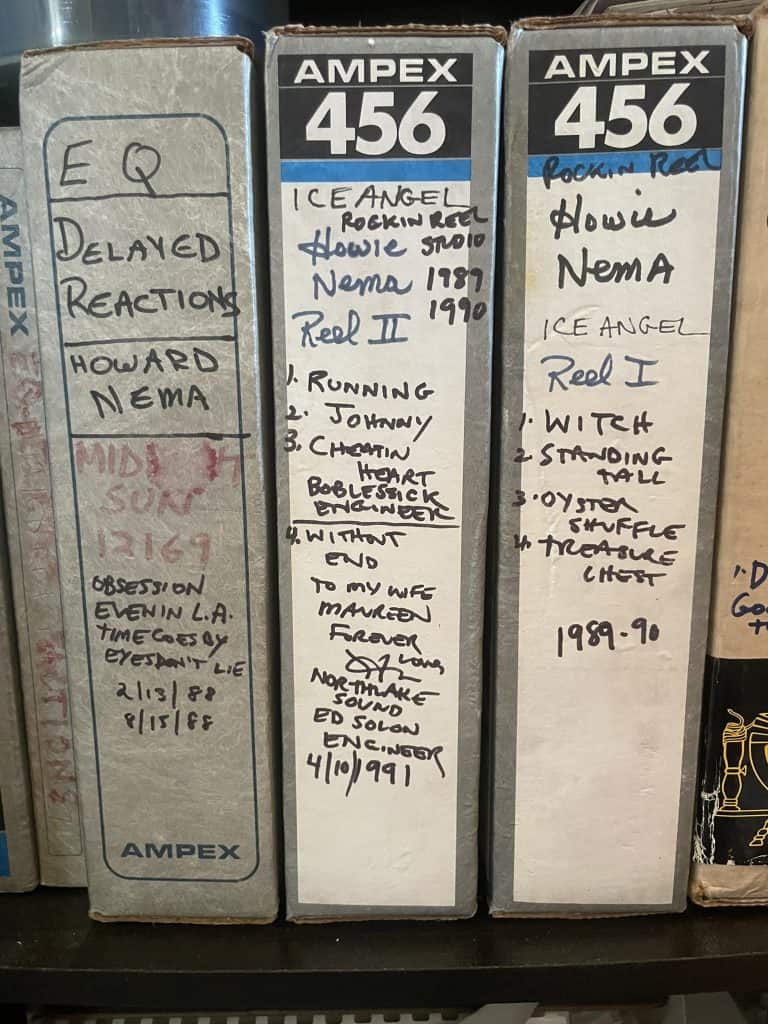 AMPEX
EQ
DELAYED
REACTIONS
HOWARD
NEMA
SUN
12169
OBSESSION
EVENIN L.A.
TIME GOES BY
EYES DON'T LIE
2/13/88
8/15/88
AMPEX
AMPEX
456
ICE ANGEL
ROCKIN REEL
Howie STUDIO
Nema 1989
1990
Reel II
1. RUNNING
2. JOHNNY
3. CHEATIN
HEART
BOB LESSICK
ENGINEER
4. WITHOUT
END
TO MY WIFE
MAUREEN
FOREVER
LOVE
NORTHLAKE
SOUND
ED SOLON
ENGINEER
4/10/1991
AMPEX
456
ROCKIN REEL
Howie
NEMA
ICE ANGEL
Reel I
1. WITCH
2. STANDING
TALL
3. OYSTER
SHUFFLE
4. TREASURE
CHEST
1989-90